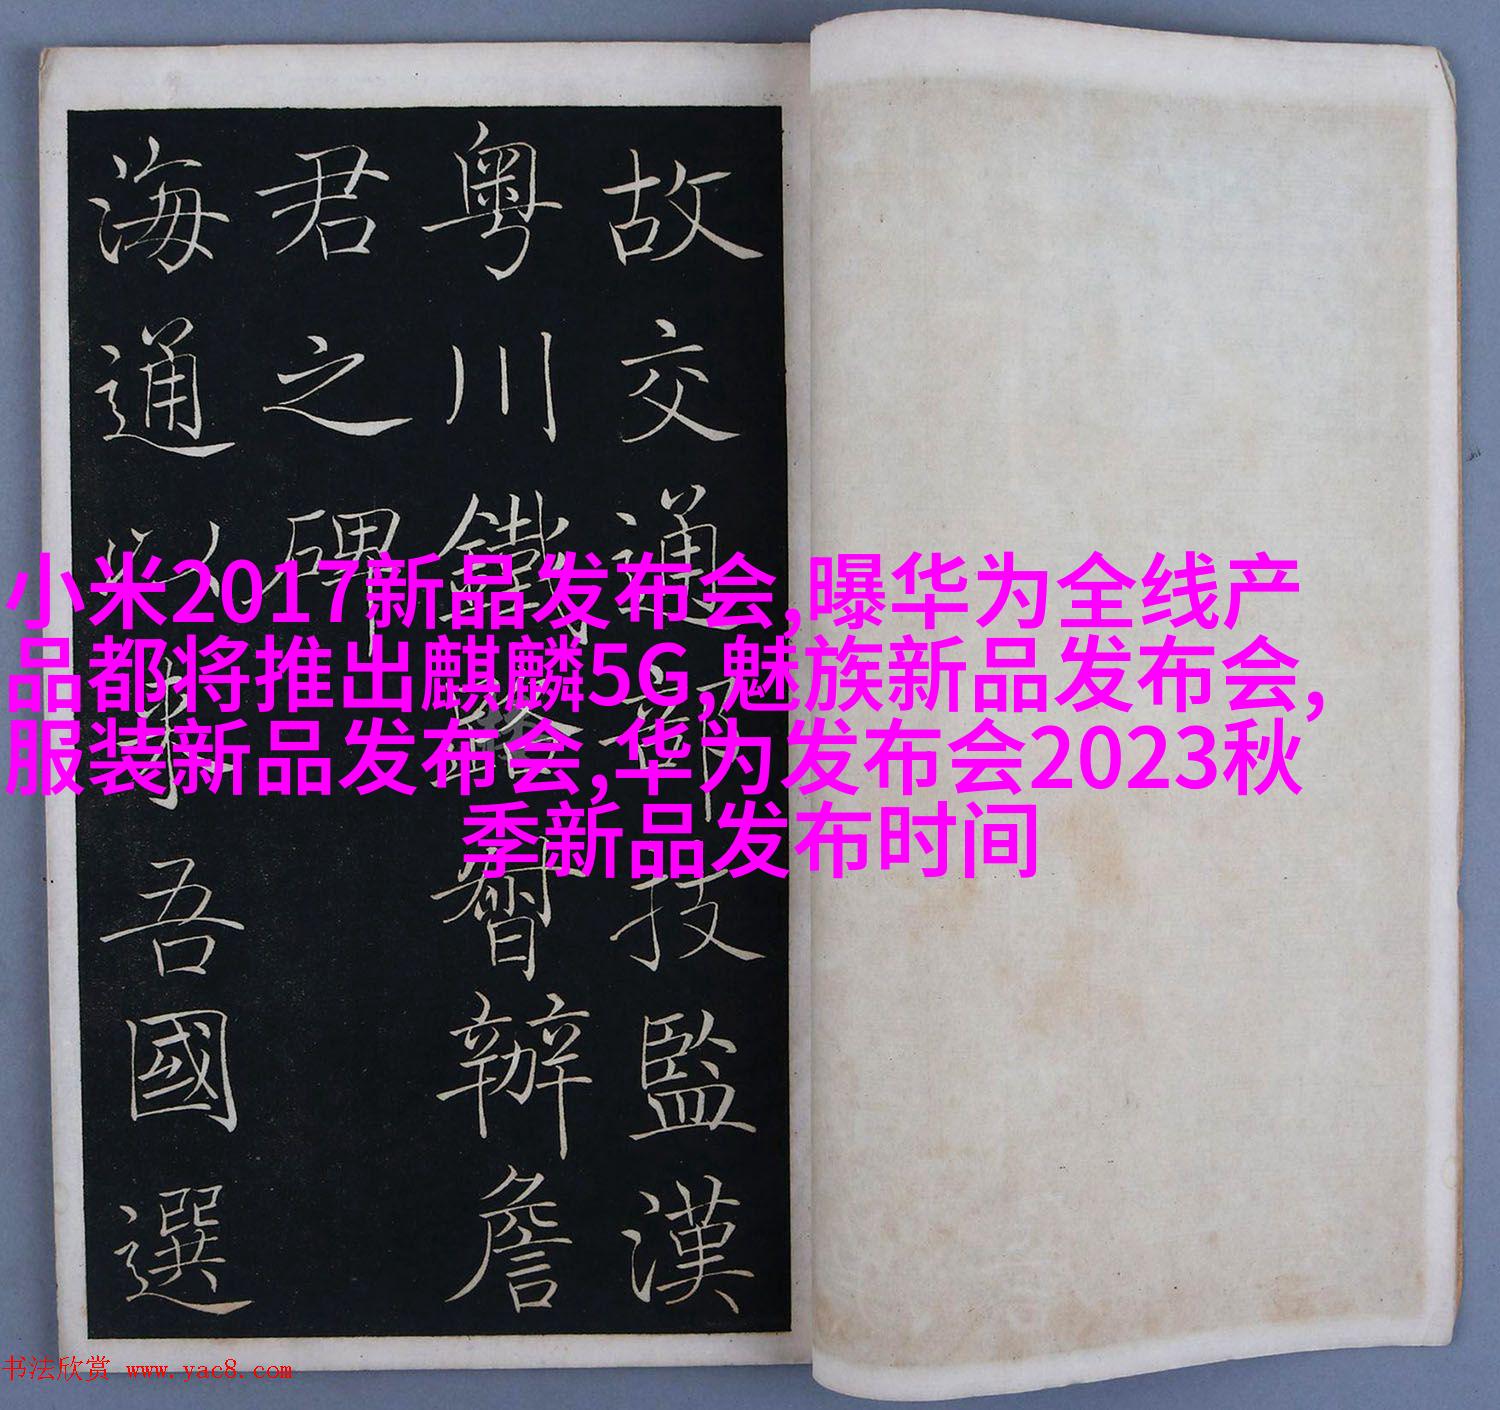 故交通部技監漢
粵川鐵路督辦詹
君之碑
海通以來吾國選
小米2017新品发布会,曝华为全线产
品都将推出麒麟5G,魅族新品发布会,
服装新品发布会,华为发布会2023秋
季新品发布时间
书法欣赏 www.yac8.com